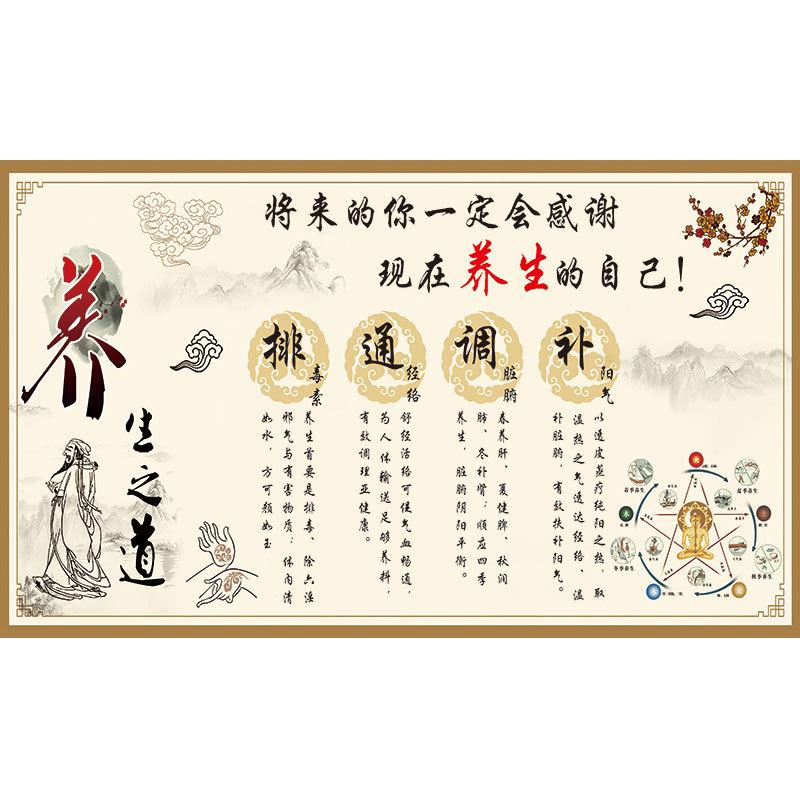 将来的你一定会感谢
现在养生的自己！
养生之道
排毒素
养生首要是排毒、除六淫
邪气与有害物质；体内清
如水，方可颜如玉
通经络
舒经活络可使气血畅通，
为人体输送足够养料，
有效调理亚健康。
调脏腑
春养肝、夏健脾、秋润
肺、冬补肾；顺应四季
养生，脏腑阴阳平衡。
补阳气
以透皮蒸疗纯阳之热，取
温热之气透达经络、温
补脏腑，有效扶补阳气。
火
春季养生
夏季养生
木
土
冬季养生
秋季养生
水
金